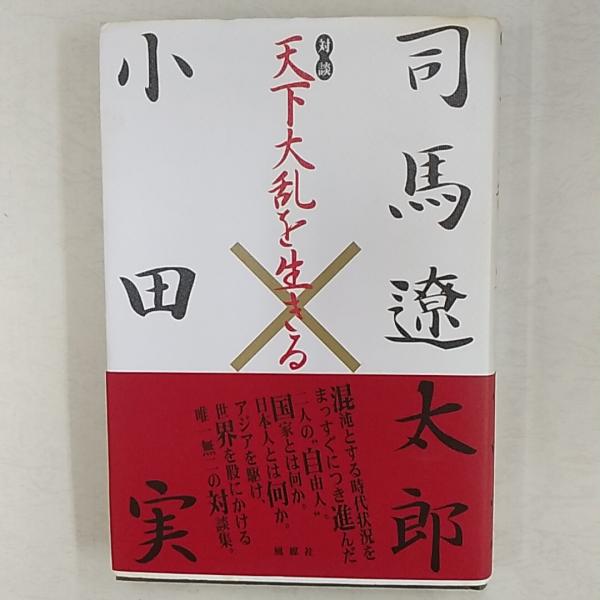 司馬遼太郎
対談
天下大乱を生きる
小田実
混沌とする時代状況を
まっすぐにつき進んだ
二人の“自由人”。
国家とは何か。
日本人とは何か。
アジアを駆け、
世界を股にかける
唯一無二の対談集。
風媒社